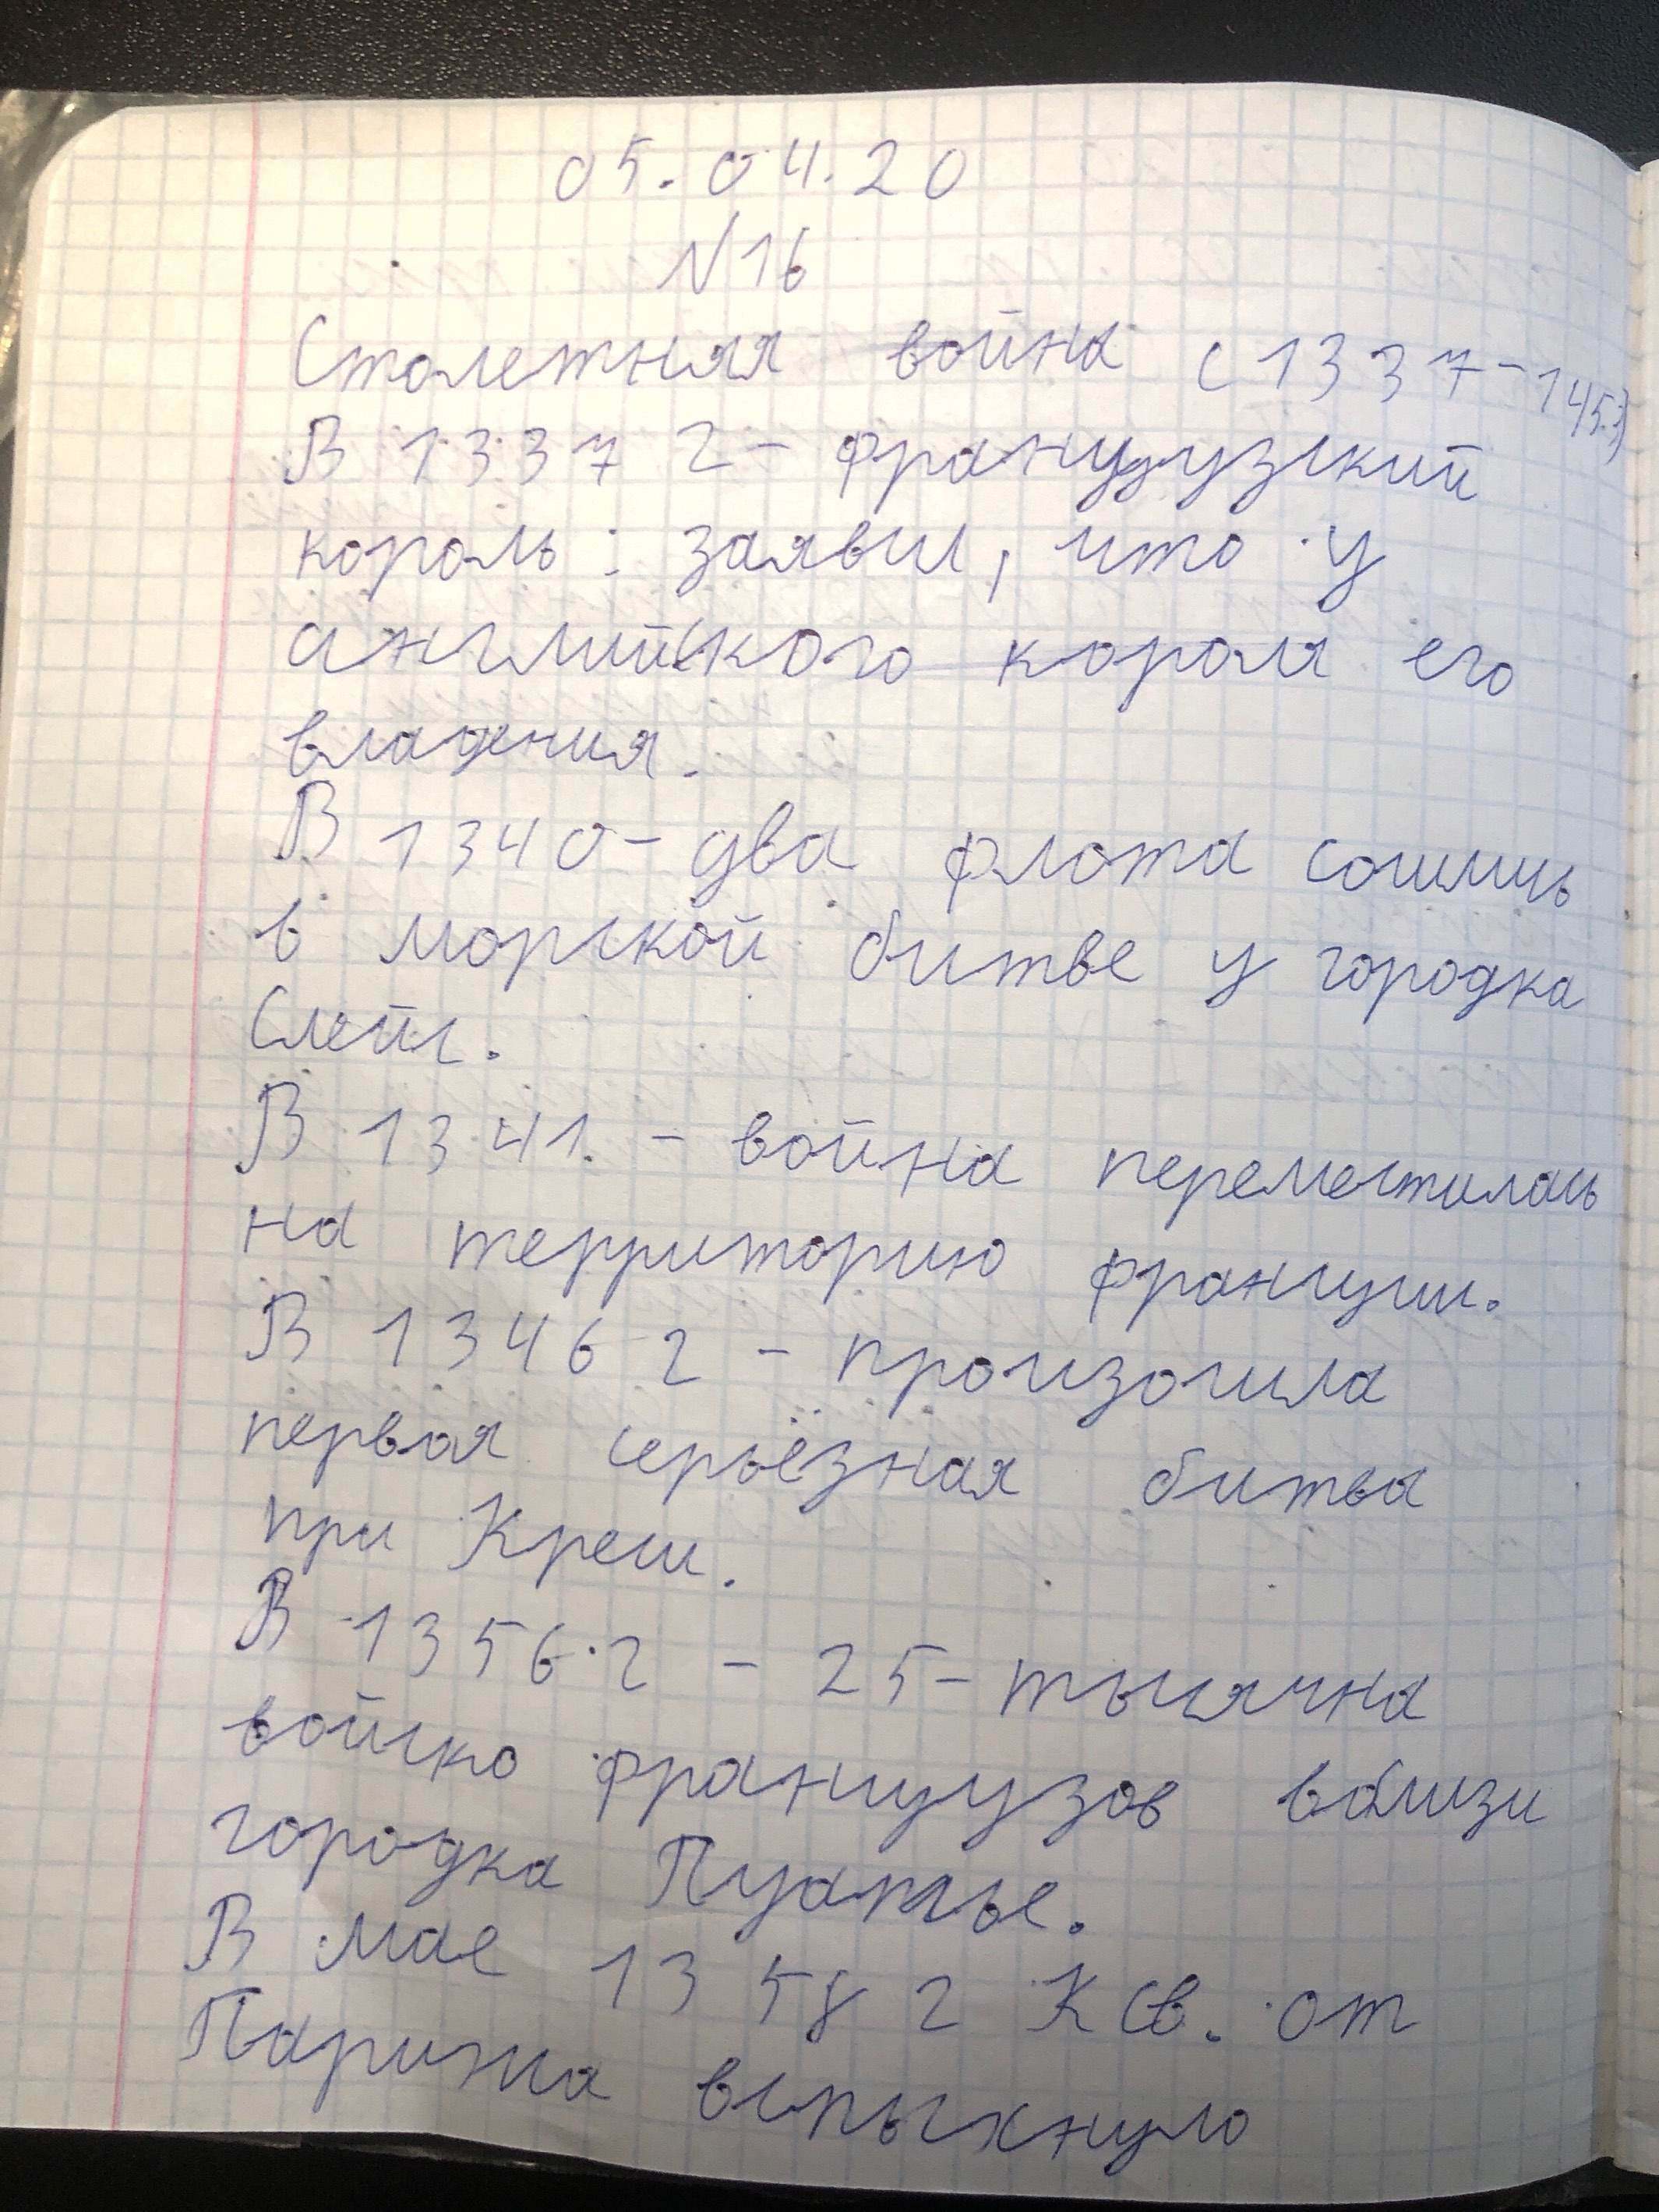 05.04.20
N16
Столетняя война (1337-1453)
В 1337 г - французский
король: заявил, что у
английского короля его
владения.
В 1340- два флота сошлись
в морской битве у городка
Слейс.
В 1341. - война переместилась
на территорию франции.
В 1346 г - произошла
первая серьёзная битва
при Креси.
В 1356 г - 25- тысячна
войско французов вблизи
городка Пуатье.
В мае 1358 г К св. от
Парижа вспыхнуло